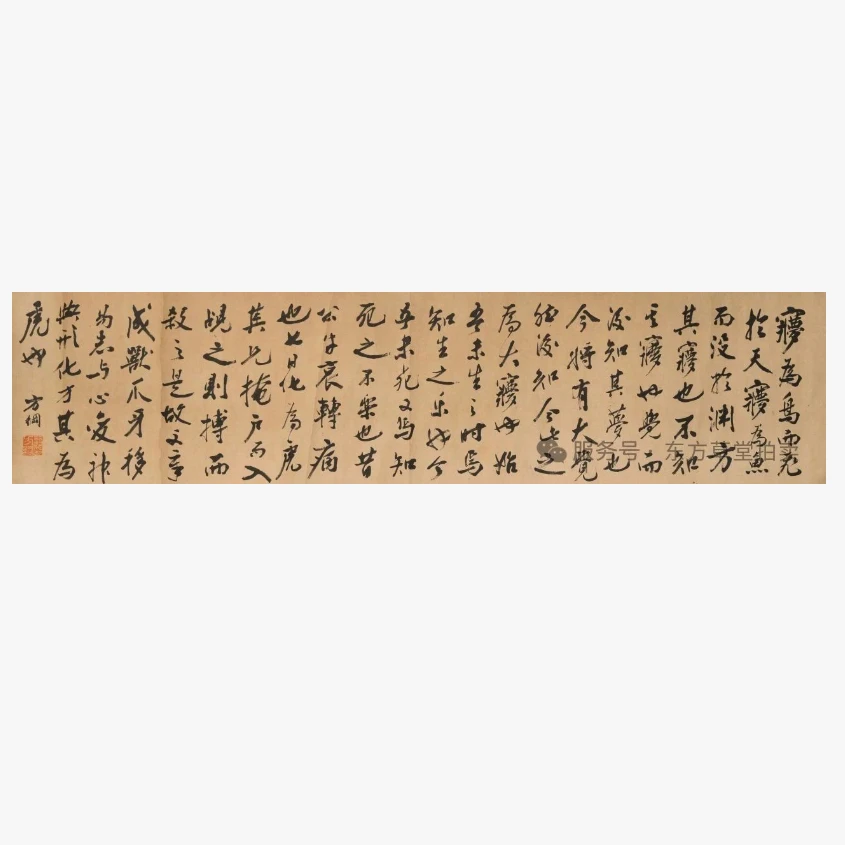 寱為鳥而飛
於天寱為魚
而没於淵方
其寱也不知
其寱也覺而
後知其夢也
今將有大覺
然後知今此之
為大寱也始
吾未生之時焉
知生之樂也今
吾未死又焉知
死之不樂也昔
公牛哀轉病
也七日化為虎
其兄掩户而入
覘之則搏而
殺之是故文章
成獸爪牙移
易志与心變神
與形化方其為
虎也
方綱
服务号 东方草堂拍卖